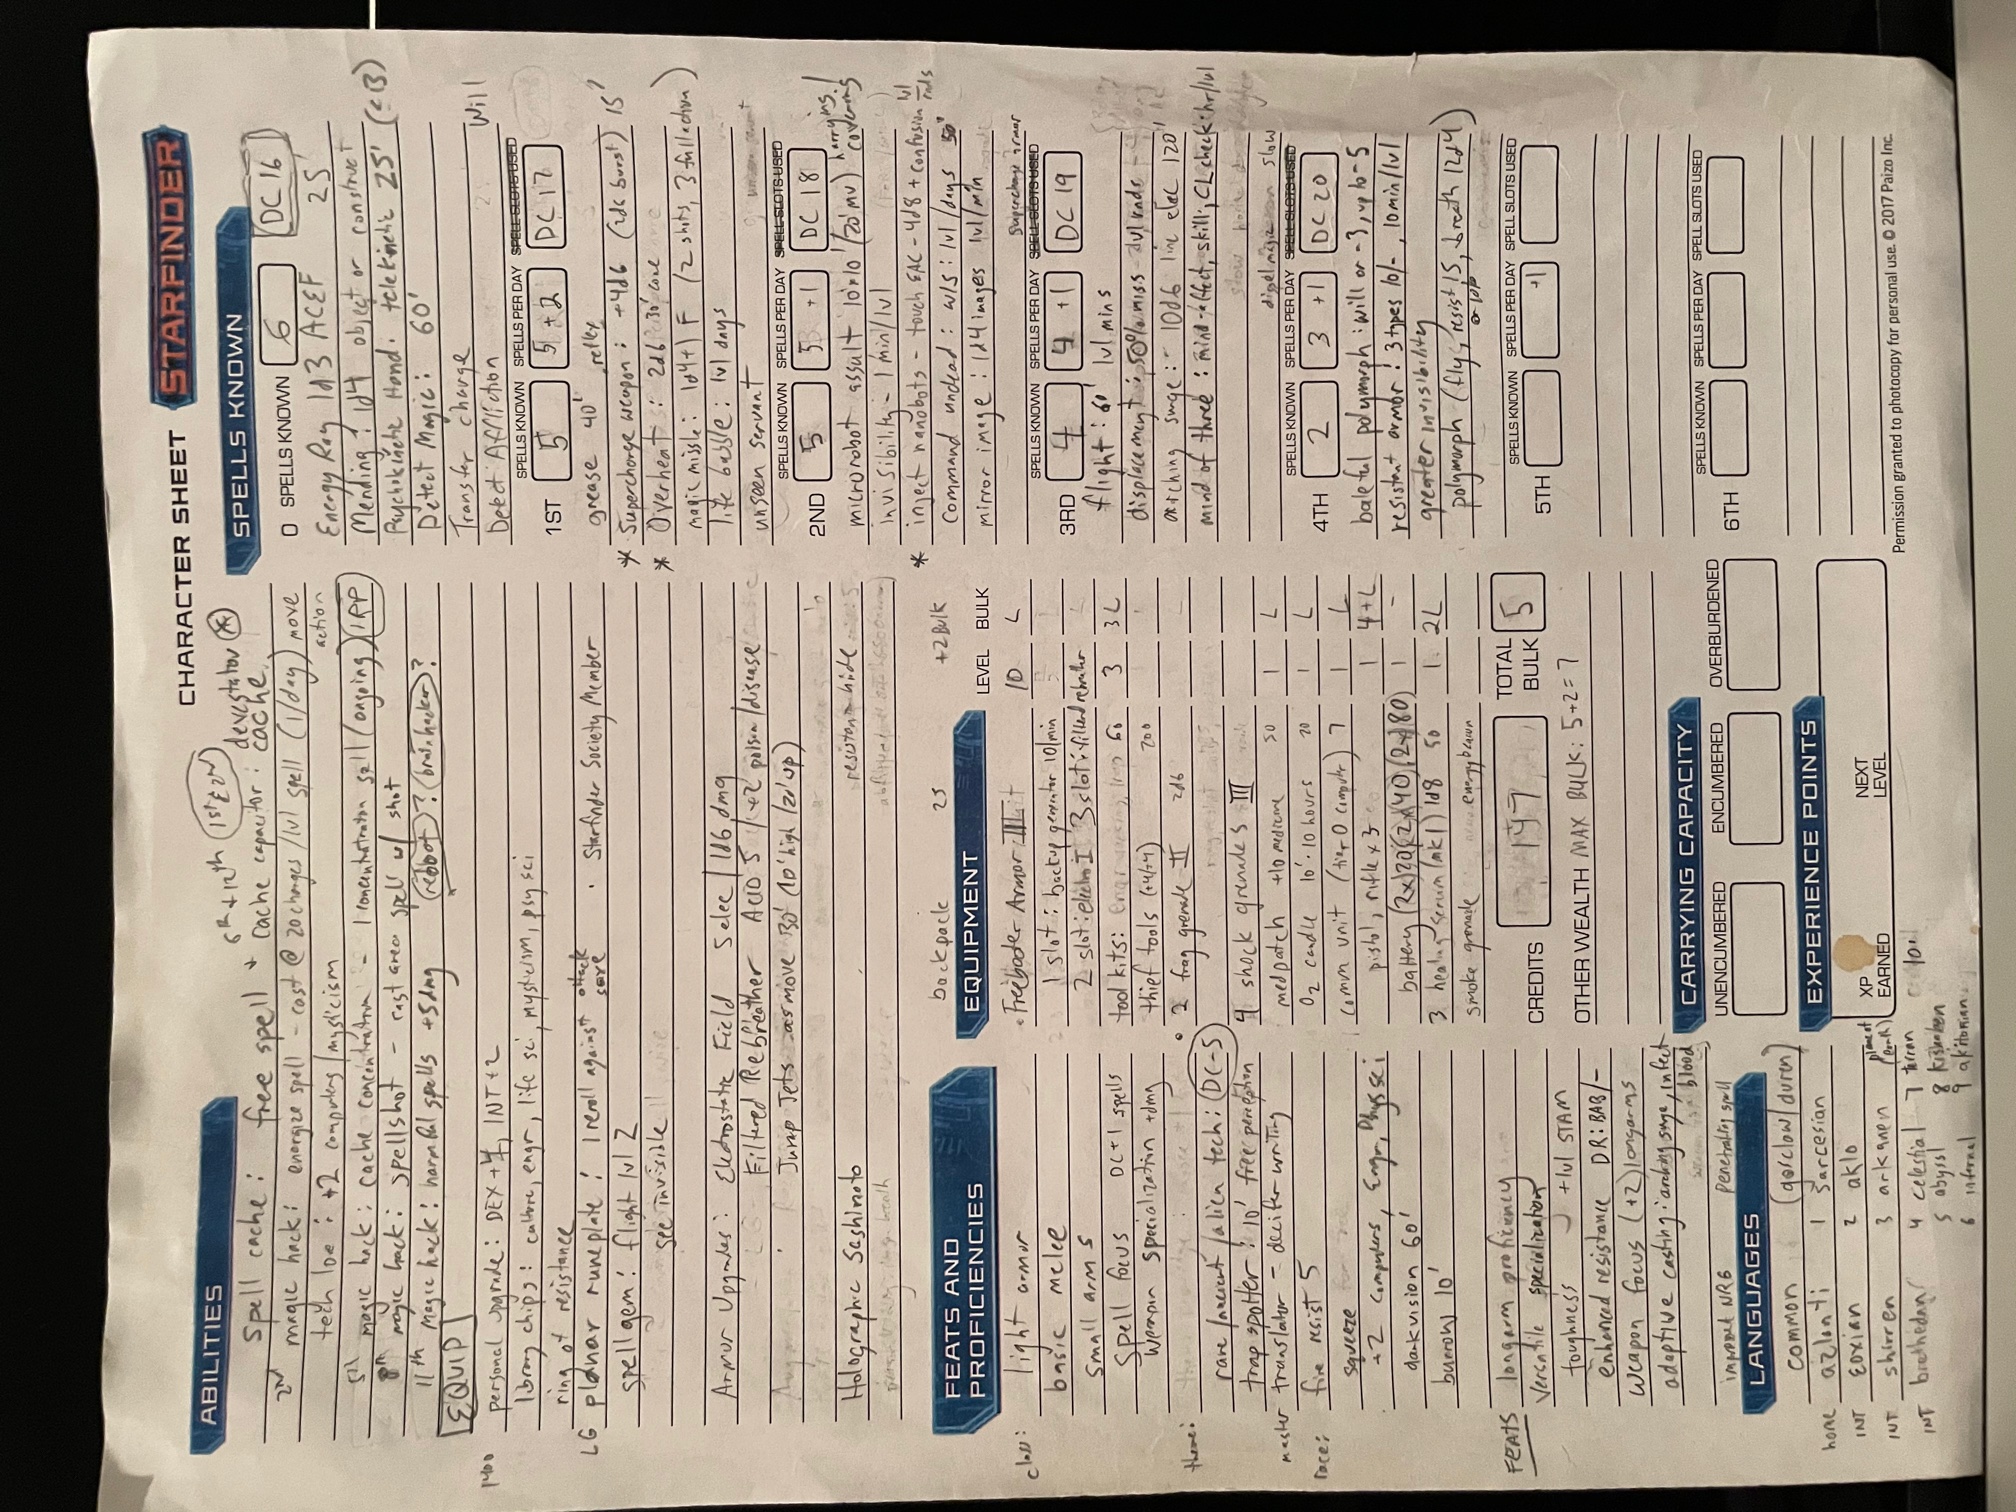 CHARACTER SHEET STARFINDER
ABILITIES
6th + 12th 1st & 2nd
spell cache: free spell + cache capacitor: devestator cache
2nd magic hack: energize spell - cast @ 20 charges/lvl spell (1/day) move action
tech lore: +2 computers/mysticism
5th magic hack: cache concentration - 1 concentration spell (ongoing) 1 RP
8th magic hack: spellshot - cast area spell w/ shot
11th magic hack: harmful spells +5 dmg (reboot)? (brainhacker)?
EQUIP
1400 personal upgrade: DEX +4, INT +2
library chips: culture, engr, life sci, mysticism, psy sci
ring of resistance
LG planar runeplate: 1 reroll against attack save · Starfinder Society Member
spell gem: flight lvl 2
see invisible
Armor Upgrades: Electrostatic Field 5 elec / 1d6 dmg
Filtered Rebreather Acid 5 / +2 poison/disease
Jump Jets as move 30' (10' high / 20' up)
Holographic Sashimoto resistant hide
FEATS AND PROFICIENCIES
class: light armor
basic melee
small arms
spell focus DC+1 spells
weapon specialization +dmg
theme:
rare/ancient/alien tech: DC-5
trap spotter: 10' free perception
master translator - decifer writing
race: fire resist 5
squeeze
+2 computers, Engr, Phys sci
darkvision 60'
burrow 10'
FEATS longarm proficiency
Versatile specialization
toughness +lvl STAM
enhanced resistance DR: BAB/-
weapon focus (+2) longarms
adaptive casting: arching surge, infect blood
improved NRG penetrating spell
LANGUAGES
common (gosclow/duren)
home azlanti 1 sarcesian
INT eoxian 2 aklo
INT shirren 3 arkanen (plane of earth)
INT brethedan 4 celestial 7 terran
5 abyssl 8 kishaleen
6 infernal 9 akitonian
backpack 25 +2 Bulk
EQUIPMENT LEVEL BULK
Freeboder Armor III 10 L
1 slot: backup generator 10/min
2 slot: electro I 3 slot: filterd rebreather
tool kits: 60 3 3L
thief tools (+4/+4) 200
2 frag grenade II 2d6
4 shock grenades III
medpatch +10 medicine 50 1 L
O2 candle 10' · 10 hours 20 1 L
comm unit (tier 0 computer) 7 1 L
pistol, rifle x3 1 4+L
battery (2x)20 (2x)40 (2x)80 1 -
3 healing serum (mk1) 1d8 50 1 2L
smoke grenade energy beacon
CREDITS 147 TOTAL BULK 5
OTHER WEALTH MAX BULK: 5+2=7
CARRYING CAPACITY
UNENCUMBERED ENCUMBERED OVERBURDENED
EXPERIENCE POINTS
XP EARNED NEXT LEVEL
10
SPELLS KNOWN
0 SPELLS KNOWN 6 DC 16
Energy Ray 1d3 ACEF 25'
Mending: 1d4 object or construct
Psychokinetic Hand: telekinetic 25' (<B)
Detect Magic: 60'
Transfer charge
Detect Affliction Will
SPELLS KNOWN SPELLS PER DAY SPELL SLOTS USED
1ST 5 5+2 DC 17
grease 40' reflex
* Supercharge weapon: +4d6 (2d6 burst) 15'
* Overheat: 2d6 30' cone
magic missle: 1d4+1 F (2 shots, 3 full action)
life bubble: lvl days
unseen servant
SPELLS KNOWN SPELLS PER DAY SPELL SLOTS USED
2ND 5 5 +1 DC 18
microrobot assult 10'x10' (20' mv) harrying/covering
invisibility - 1 min/lvl
* inject nanobots - touch EAC - 4d8 + confusion lvl rnds
command undead: w/s: lvl/days 50'
mirror image: 1d4 images lvl/min
Supercharge armor
SPELLS KNOWN SPELLS PER DAY SPELL SLOTS USED
3RD 4 4 +1 DC 19
flight: 60' lvl mins
displacement: 50% miss lvl rnds
arching surge: - 10d6 line elec 120'
mind of three: mind-effect, skill, CL check: hr/lvl
dispel magic slow
SPELLS KNOWN SPELLS PER DAY SPELL SLOTS USED
4TH 2 3 +1 DC 20
baleful polymorph: will or -3, up to -5
resistant armor: 3 types 10/-, 10 min/lvl
greater invisibility
polymorph (fly, resist 15, breath 12d4)
SPELLS KNOWN SPELLS PER DAY SPELL SLOTS USED
5TH +1
SPELLS KNOWN SPELLS PER DAY SPELL SLOTS USED
6TH
Permission granted to photocopy for personal use. © 2017 Paizo Inc.